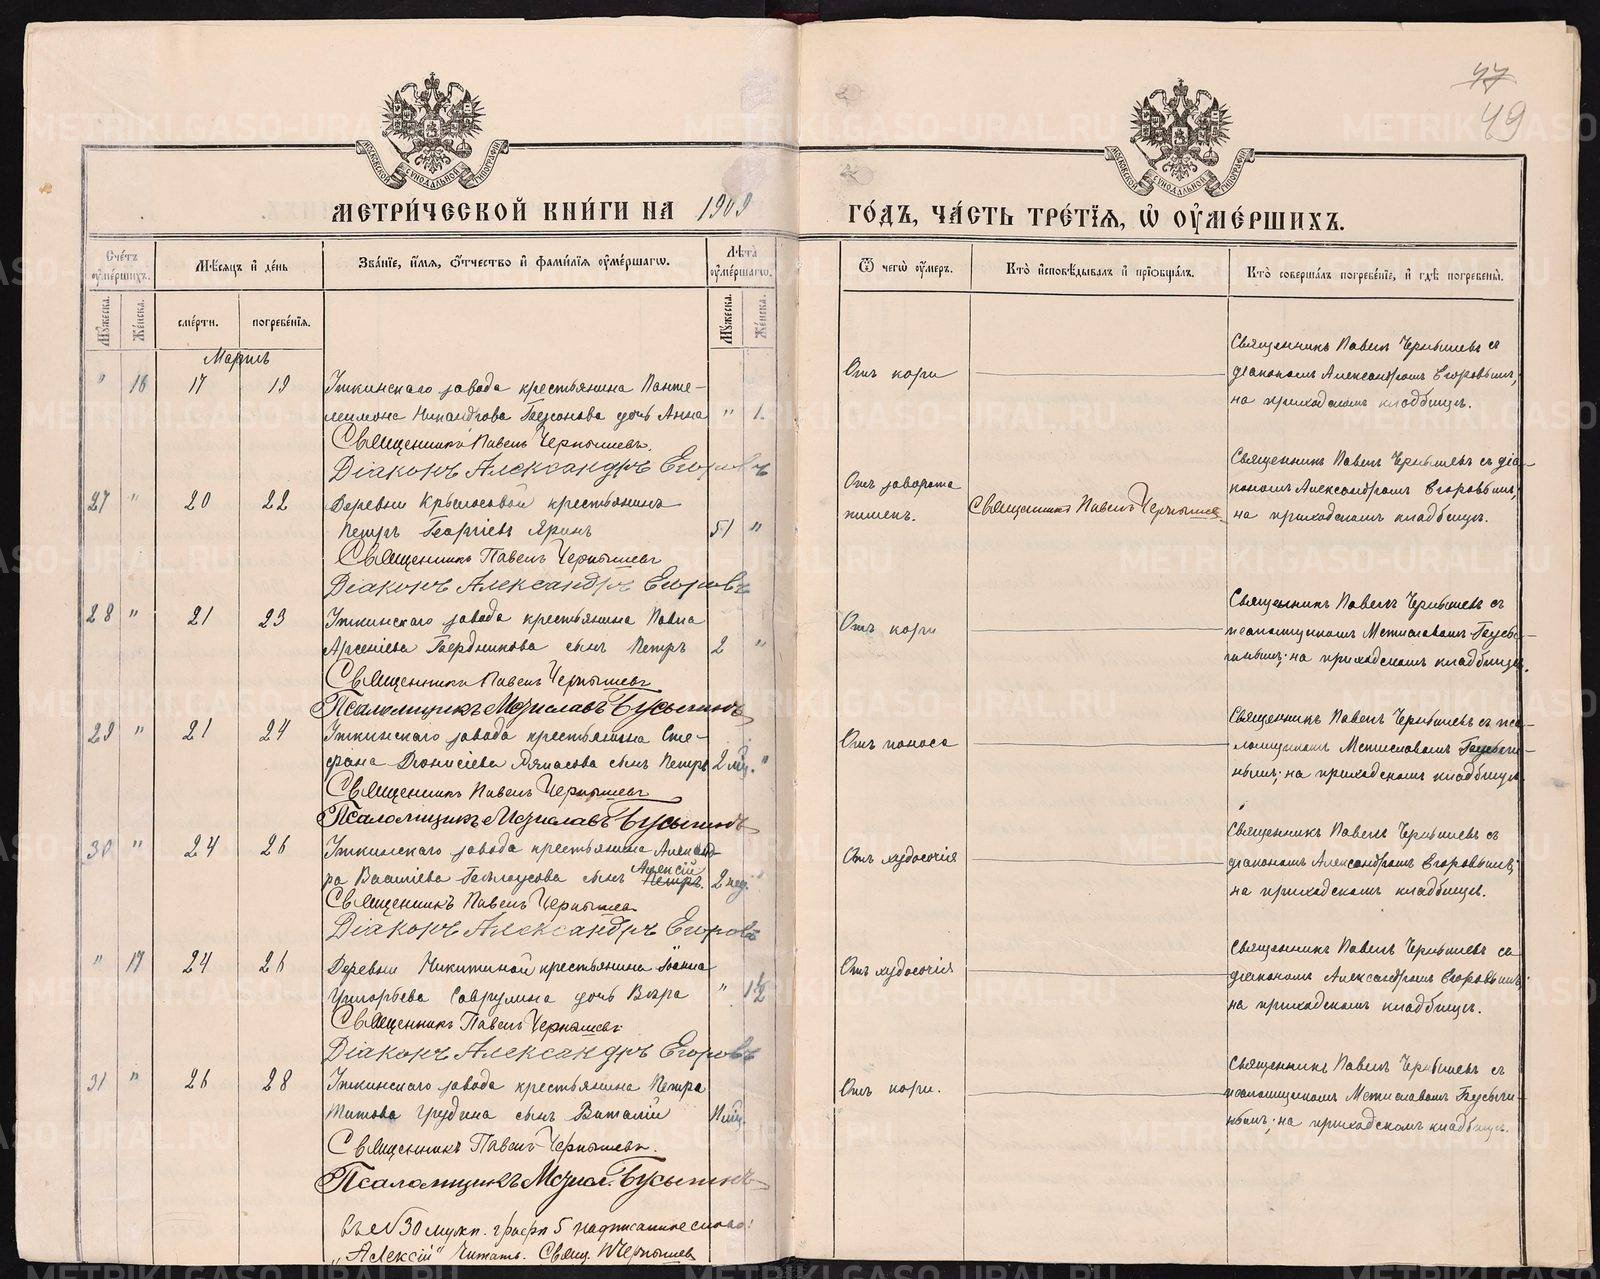 47
49
МОСКОВСКОЙ СУНОДАЛЬНОЙ ТИПОГРАФІИ
МОСКОВСКОЙ СУНОДАЛЬНОЙ ТИПОГРАФІИ
МЕТРИ́ЧЕСКОЙ КНИ́ГИ НА 1909 ГО́ДЪ, ЧА́СТЬ ТРЕ́ТІѦ, Ѡ҆ ОУ҆МЕ́РШИХЪ.
Сче́тъ оу҆ме́ршихъ.
Мѣ́сяцъ и҆ де́нь
Зва́ніе, и҆́мѧ, ѻ҆́тчество и҆ фами́лїѧ оу҆ме́ршагѡ.
Лѣ́та оу҆ме́ршагѡ.
Ѿ чегѡ̀ оу҆́меръ.
Кто̀ и҆сповѣ́дывалъ и҆ прїѡбща́лъ.
Кто̀ соверша́лъ погребе́нїе, и҆ гдѣ̀ погребены̀.
Му́жеска. Же́нска. сме́рти. погребе́нїѧ. Му́жеска. Же́нска.
Мартъ
" 16 17 19 Уткинскаго завода крестьянина Панте-
леимона Никандрова дочь Анна " 1.
Священникъ Павелъ Чернышевъ.
Діаконъ Александръ Егоровъ
Отъ кори
Священникъ Павелъ Чернышевъ съ
діакономъ Александромъ Егоровымъ;
на приходскомъ кладбищѣ.
27 " 20 22 Деревни Крылосовой крестьянинъ
Петръ Георгіевъ Яринъ 51 "
Священникъ Павелъ Чернышевъ
Діаконъ Александръ Егоровъ
Отъ заворота
кишекъ.
Священникъ Павелъ Чернышевъ
Священникъ Павелъ Чернышевъ съ діа-
кономъ Александромъ Егоровымъ;
на приходскомъ кладбищѣ.
28 " 21 23 Уткинскаго завода крестьянина Павла
Арсеніева Бердникова сынъ Петръ 2 "
Священникъ Павелъ Чернышевъ
Псаломщикъ Мстиславъ Бусыгинъ
Отъ кори
Священникъ Павелъ Чернышевъ съ
псаломщикомъ Мстиславомъ Бусы-
гинымъ; на приходскомъ кладбищѣ.
29 " 21 24 Уткинскаго завода крестьянина Сте-
фана Діонисіева сынъ Петръ 2 мц. "
Священникъ Павелъ Чернышевъ
Псаломщикъ Мстиславъ Бусыгинъ
Отъ поноса
Священникъ Павелъ Чернышевъ съ пса-
ломщикомъ Мстиславомъ Бусыги-
нымъ; на приходскомъ кладбищѣ.
30 " 24 26 Уткинскаго завода крестьянина Александ-
ра Василіева Бѣлоусова сынъ Петръ Алексій 2 нед. "
Священникъ Павелъ Чернышевъ
Діаконъ Александръ Егоровъ
Отъ худосочія
Священникъ Павелъ Чернышевъ съ
діакономъ Александромъ Егоровымъ;
на приходскомъ кладбищѣ.
" 17 24 26 Деревни Никитиной крестьянина Іоанна
Григорьева Саврулина дочь Вѣра " 1½
Священникъ Павелъ Чернышевъ
Діаконъ Александръ Егоровъ
Отъ худосочія
Священникъ Павелъ Чернышевъ съ
діакономъ Александромъ Егоровымъ;
на приходскомъ кладбищѣ.
31 " 26 28 Уткинскаго завода крестьянина Петра
Титова Грудина сынъ Виталій 11 мц.
Священникъ Павелъ Чернышевъ.
Псаломщикъ Мстисл. Бусыгинъ
Отъ кори.
Священникъ Павелъ Чернышевъ съ
псаломщикомъ Мстиславомъ Бусыги-
нымъ; на приходскомъ кладбищѣ.
Въ № 30 мужп. графы 5 надписанное слово:
"Алексій" читать. Свящ. П Чернышев
METRIKI.GASO-URAL.RU